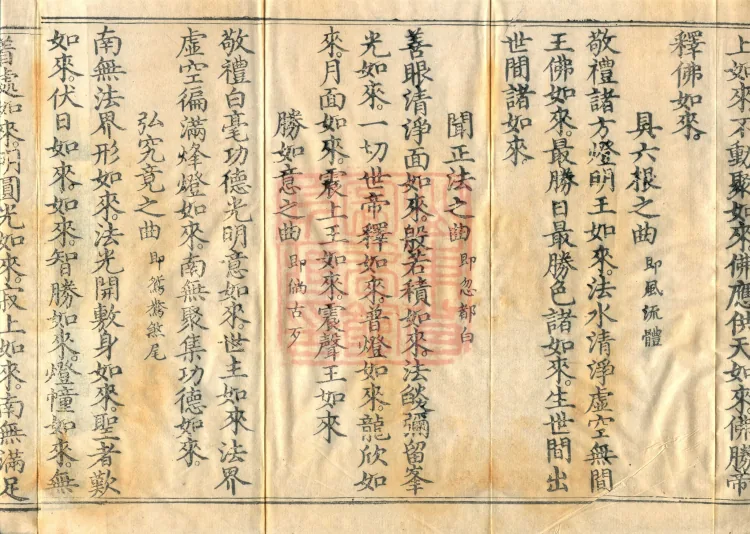 上如來不動聚如來佛應供天如來佛勝帝
釋佛如來。
具六根之曲 即風流體
敬禮諸方燈明王如來。法水清淨虛空無間
王佛如來。最勝日最勝色諸如來。生世間出
世間諸如來。
聞正法之曲 即忽都白
善眼清淨面如來。般若積如來。法燄彌留峯
光如來。一切世帝釋如來。普燈如來。龍欣如
來。月面如來。震上王如來。震聲王如來
勝如意之曲 即倘古歹
敬禮白毫功德光明意如來。世主如來法界
虛空徧滿烽燈如來。南無聚集功德如來。
弘究竟之曲 即鴛鴦煞尾
南無法界形如來。法光開敷身如來。聖者歎
如來。伏日如來。如來。智勝如來。燈幢如來。無
着處如來。明圓光如來。叔上如來。南無滿足